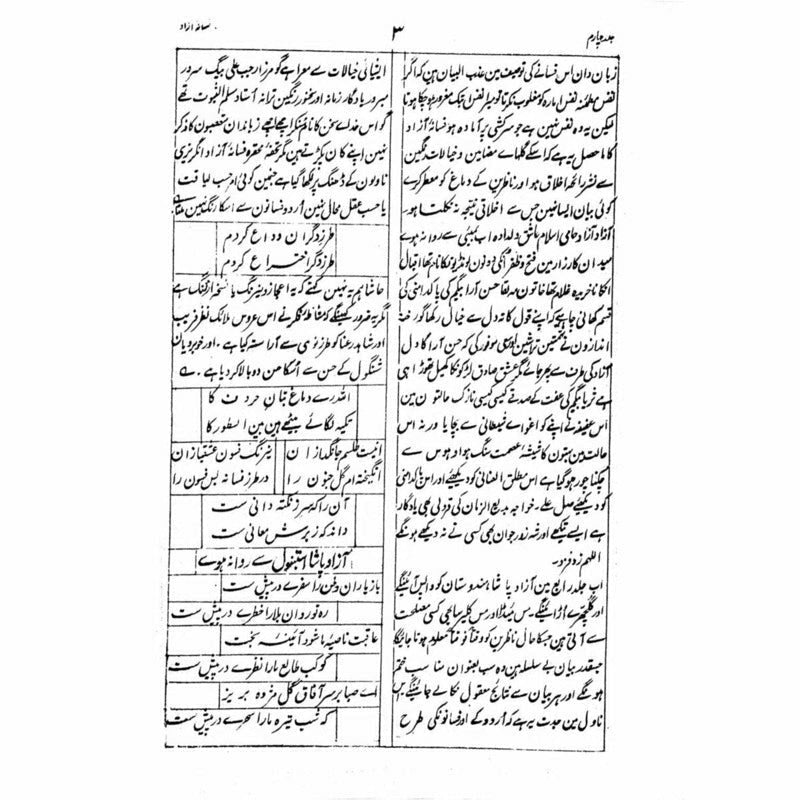 جلد چہارم
۳
فسانۂ آزاد
زبان دان اس فسانے کی توصیف مین عذب البیان ہین کہ اگر
نفس مطمئنہ نفس امارہ کو مغلوب نکرتا تو میرا نفس بیشک مغرور ہو چکا ہوتا
لیکن یہ وہ نفس نہین ہے جو سرکشی پر آمادہ ہو فسانۂ آزاد
کا ماحصل یہ ہے کہ اسکے گلہاے مضامین و خیالات رنگین
سے نشر رائحۂ اخلاق ہو اور ناظرین کے دماغ کو معطر کرے
کوئی بیان ایسا نہین جس سے اخلاقی نتیجہ نہ نکلتا ہو۔
آزاد آزاد حامی اسلام عاشق دلدادہ اب بمبئی سے روانہ ہوے
میدان کارزار مین فتح و ظفر انکی دونون لونڈیونکا نام تھا اقبال
انکا ناخریدہ غلام تھا خاتون مہ لقا حسن آرا بیگم کی پاکدامنی کی
قسم کھانی چاہیے کہ اپنے قول کا تہ دل سے خیال رکھا گو رخنہ
اندازون نے تراشین اور سعی موفور کی کہ حسن آرا کا دل
آزاد کی طرف سے پھر جائے مگر عشق صادق لڑکونکا کھیل تھوڑا ہی
ہے ثریا بیگم کی عفت کے صدقے کیسی کیسی نازک حالتون مین
اس عفیفہ نے اپنے کو اغواے شیطانی سے بچایا ورنہ اس
حالت مین بہتون کا شیشۂ عصمت سنگ ہوا و ہوس سے
چکنا چور ہو گیا ہے اس مطلق العنانی کو دیکھیے اور اس پاکدامنی
کو دیکھیے صل علے۔ خواجہ بدیع الزمان کی قرولی بھی یادگار
ہے ایسے تیکھے اور شہ زور جوان بھی کسی نے نہ دیکھے ہونگے
اللہم زد فزد۔
اب جلد رابع مین آزاد پاشا ہندوستان کو واپس آئینگے
اور گلچھرے اڑائینگے۔ مس میڈا اور مس کلیرسا بھی کسی مصلحت
سے آئی ہین جسکا حال ناظرین کو وقتاً فوقتاً معلوم ہوتا جائیگا
جسقدر بیان بے سلسلہ ہین وہ سب بعنوان مناسب ختم
ہونگے اور ہر بیان سے نتائج معقول نکالے جائینگے اس
ناول مین جدت یہ ہے کہ اردو کے اور فسانونکی طرح
ایشیائی خیالات سے معرا ہے گو مرزا رجب علی بیگ سرور
مبرور یادگار زمانہ اور سخنور رنگین ترانہ استاد مسلم الثبوت تھے
گو اس خداے سخن کا نام سنکر اچھے اچھے زباندان متعصبون کا ذکر
نہین اپنے کان پکڑتے ہین مگر تحفۂ محقرہ فسانۂ آزاد انگریزی
ناولون کے ڈھنگ پر لکھا گیا ہے جنمین کوئی امر حسب لیاقت
یا حسب عقل محال نہین اردو فسانون سے اسکا رنگ نہین ملتا
طرز دگران وداع کردم
طرز دگر اختراع کردم
حاشا ہم یہ نہین کہتے کہ یہ اعجاز و نیرنگ یا نسخۂ ارژنگ ہے
مگر یہ ضرور کہینگے کہ مشاطۂ فکر نے اس عروس ملائک نظر فریب
اور شاہد رعنا کو طرز نوی سے آراستہ کیا ہے۔ اور خوبرویان
شنگول کے حسن سے اسکا حسن دوبالا کر دیا ہے۔
اللہ رے دماغ بتان خرد کا
تکیہ لگائے بیٹھے ہین بین السطور کا
انیت طلسم جانگدازان
نیرنگ فسون عشقبازان
انگیختہ ام گل جنون را
در طرز فسانہ بس فسون را
آن را کہ سر ز نکتہ دانی ست
داند کہ زیرش معانی ست
آزاد پاشا استنبول سے روانہ ہوے
باز یاران وطن را سفرے در پیش ست
رہ نوردان بلا را خطرے در پیش ست
عاقبت ناصیۂ ما شود آئینۂ بخت
کوکب طالع ما را نظرے در پیش ست
اے صبا بر سر آفاق گل مژدہ بریز
کہ شب تیرہ ما را سحرے در پیش ست